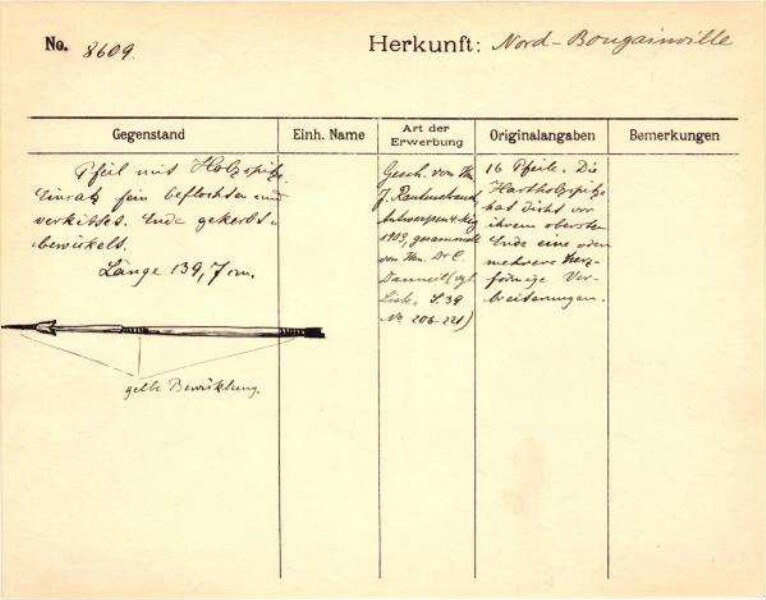 No. 8609.
Herkunft: Nord-Bougainville
Gegenstand
Einh. Name
Art der
Erwerbung
Originalangaben
Bemerkungen
Pfeil mit Holzspitze.
Einsatz fein beflochten und
verkittet. Ende gekerbt u.
bewickelt.
Länge 139,7 cm.
gelbe Bewicklung.
Gesch. von Hn.
J. Rautenstrauch
Antwerpen 4. Aug
1903, gesammelt
von Hn. Dr C.
Danneil (vgl.
Liste. S. 39
No 206-221)
16 Pfeile. Die
Hartholzspitze
hat dicht vor
ihrem obersten
Ende eine oder
mehrere herz-
förmige Ver-
breiterungen.